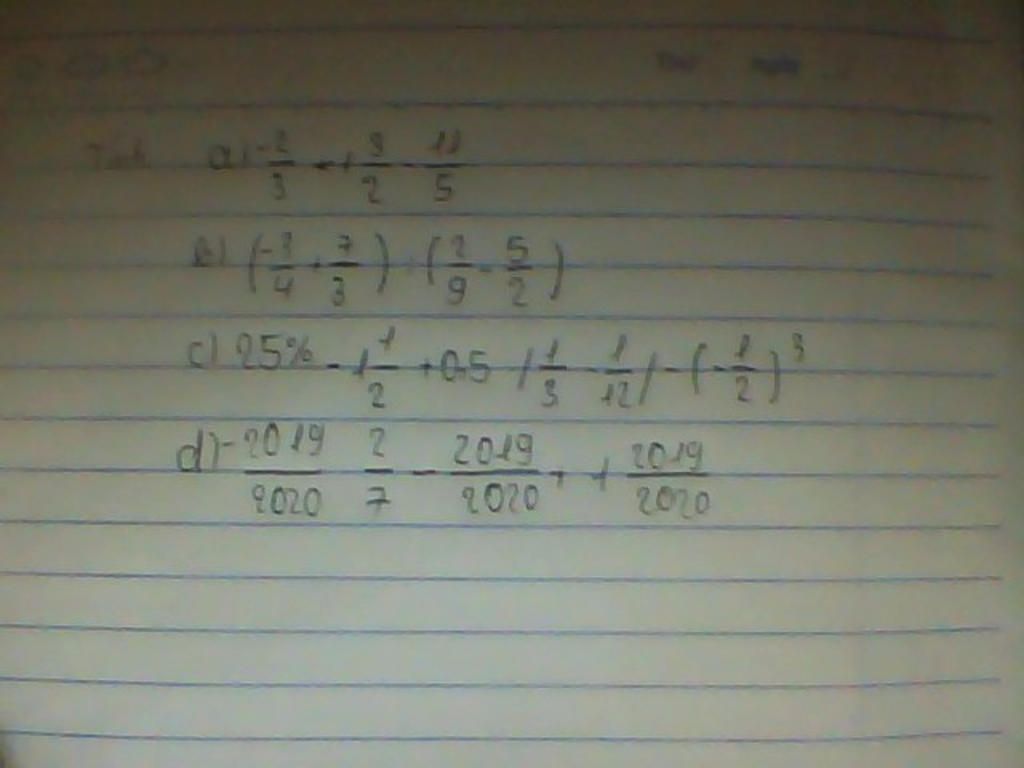 Tính a) -2/3 + 3/2 - 11/5
b) (-3/4 + 7/3) : (2/9 - 5/2)
c) 25% - 1 1/2 + 0.5 / 1/3 - 1/12 / - (-1/2)^3
d) -2019/2020 2/7 - 2019/2020 + 1 2019/2020